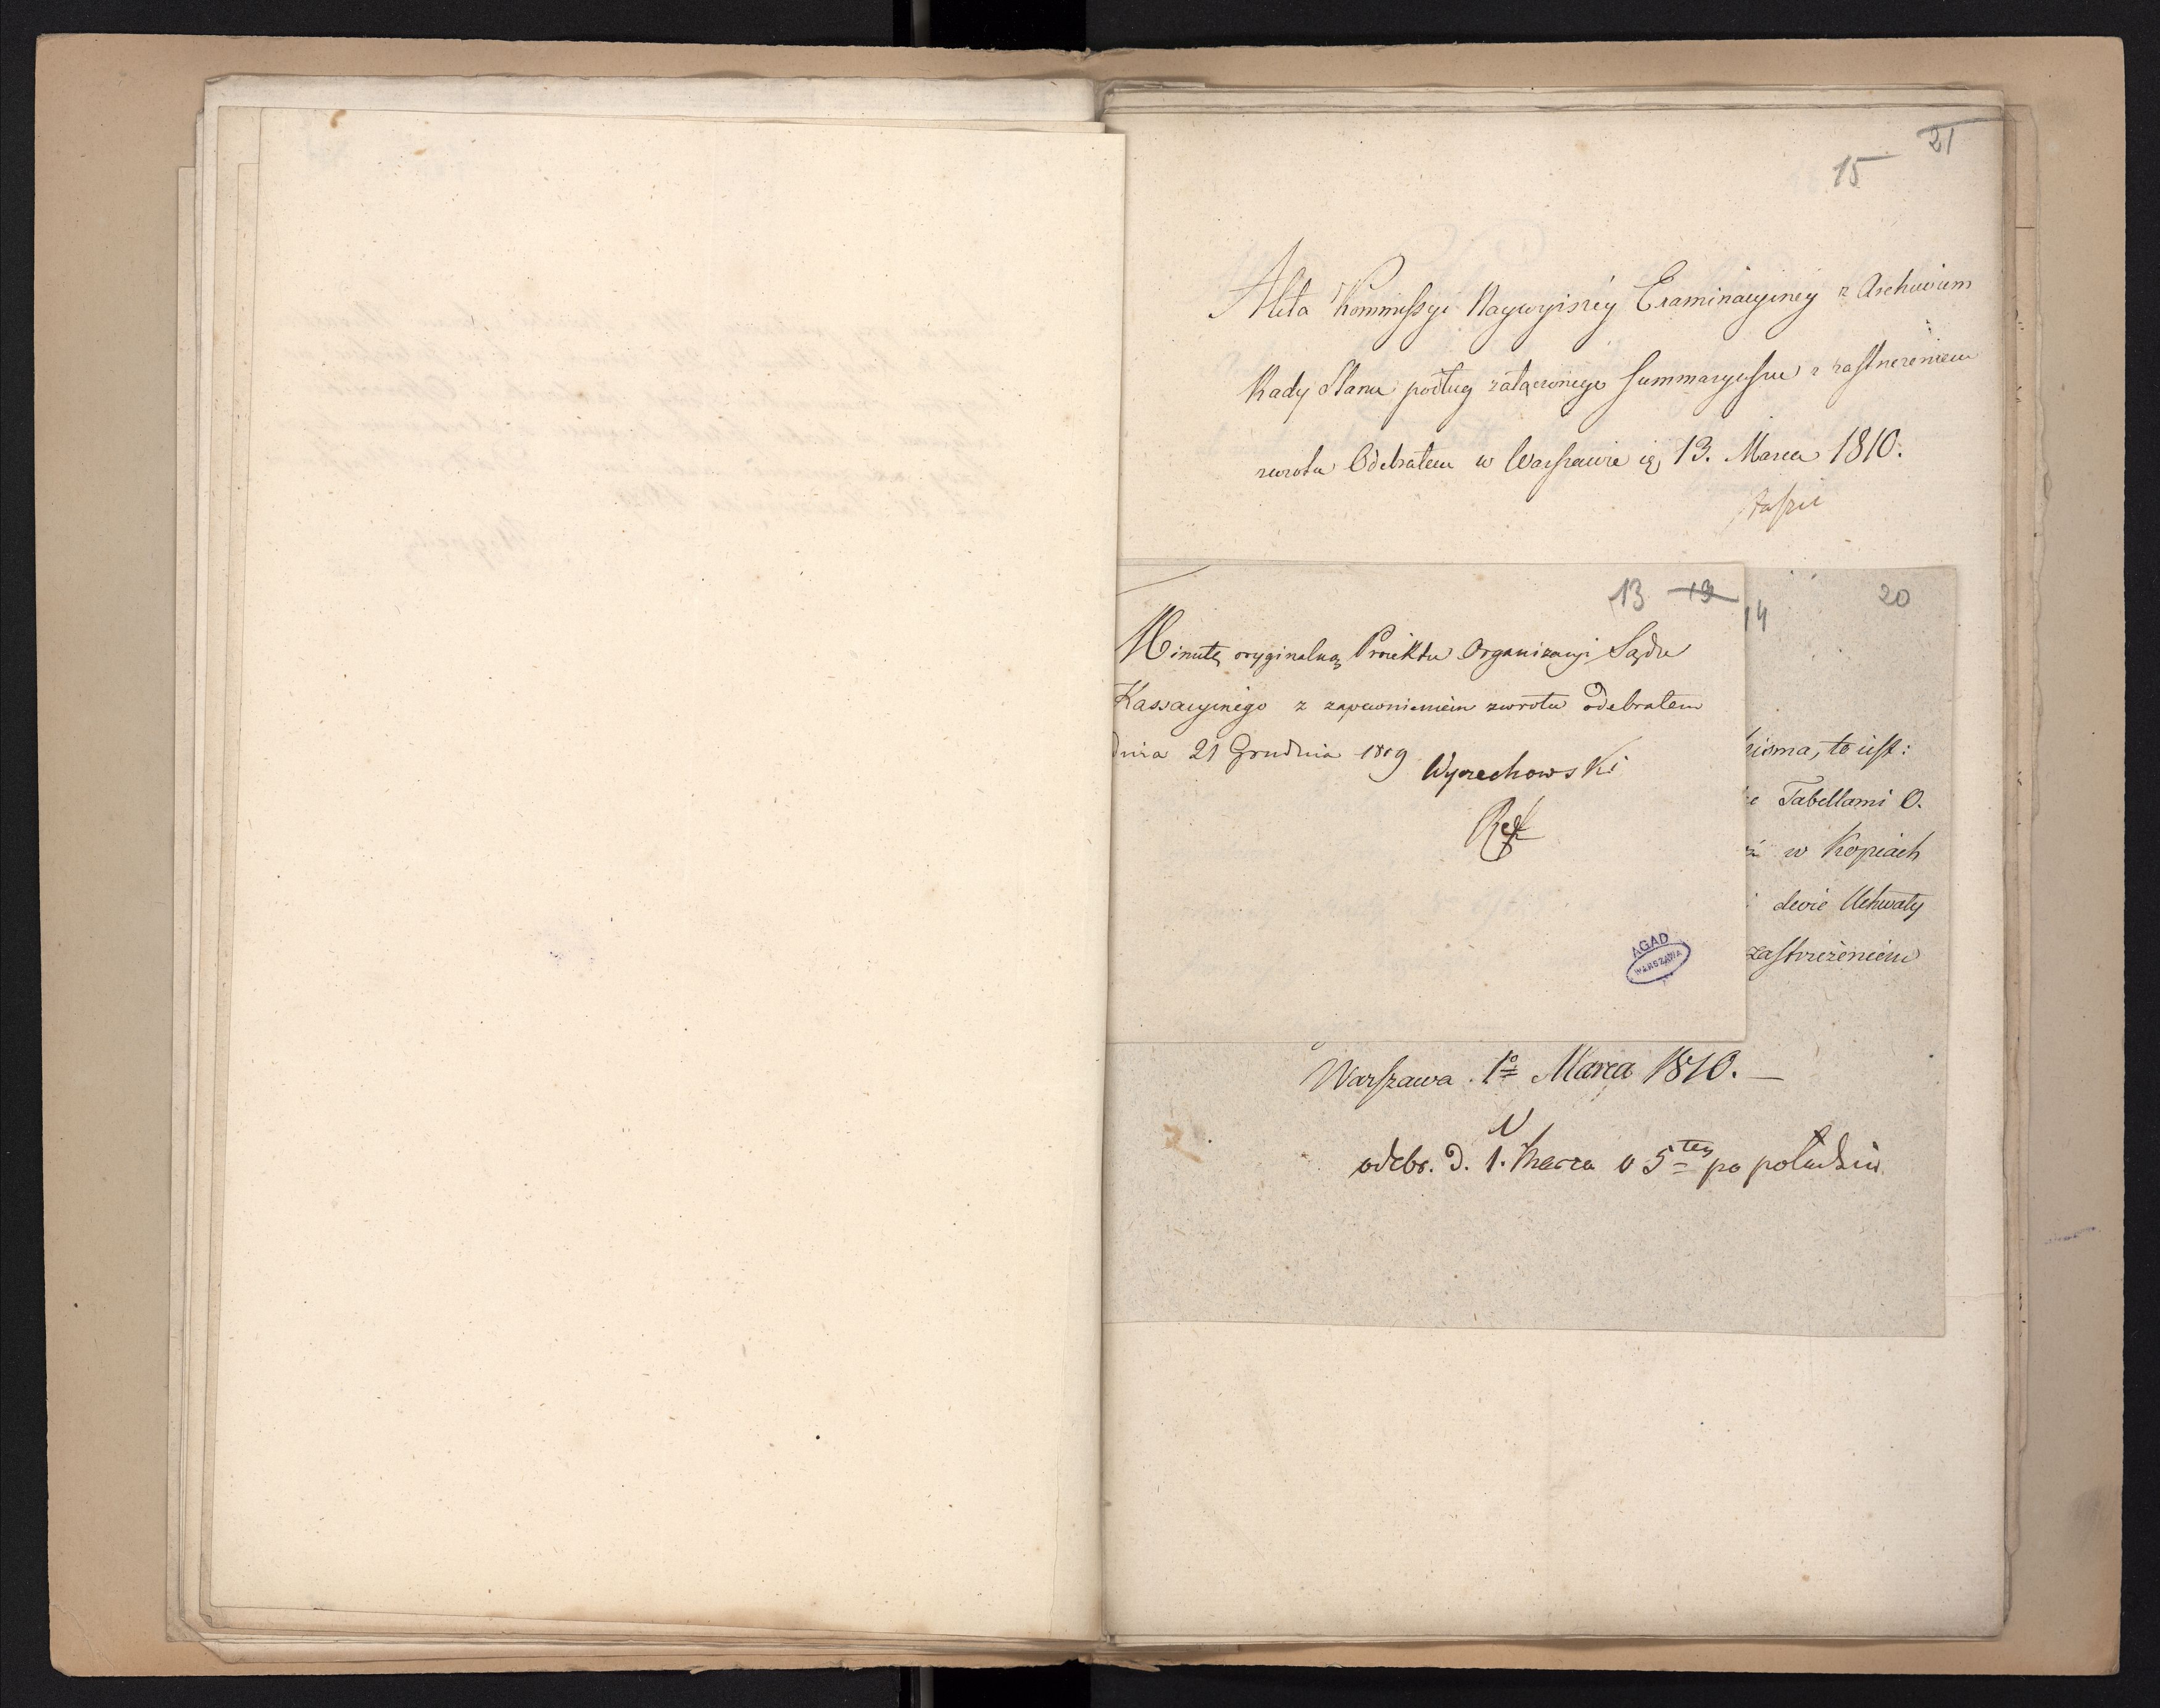 21
15
Akta Kommissyi Naywyższéy Examinacyinéy z Archiwum
Rady Stanu podług załączonego Summaryuszu z zastrzeżeniem
zwrotu Odebrałem w Warszawie 13. Marca 1810.
Staszic
13 19
Minutę oryginalną Proiektu Organizacyi Sądu
Kassacyinego z zapewnieniem zwrotu odebrałem
dnia 21 Grudnia 1809
Wyczechowski
Ref
AGAD
WARSZAWA
14
20
pisma, to iest:
Tabellami O.
w Kopiach
dwie Uchwały
zastrzeżeniem
Warszawa 1º Marca 1810.—
odebr. d. 1. Marca o 5tey po południu